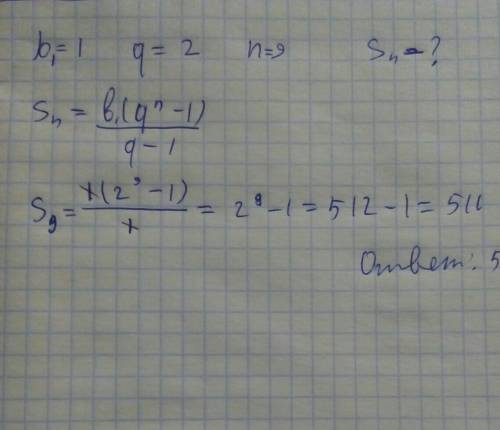 b₁ = 1 q = 2 n = 9 Sₙ – ?
Sₙ = b₁(qⁿ – 1) / q – 1
S₉ = 1(2⁹ – 1) / 1 = 2⁹ – 1 = 512 – 1 = 511
Ответ: 5